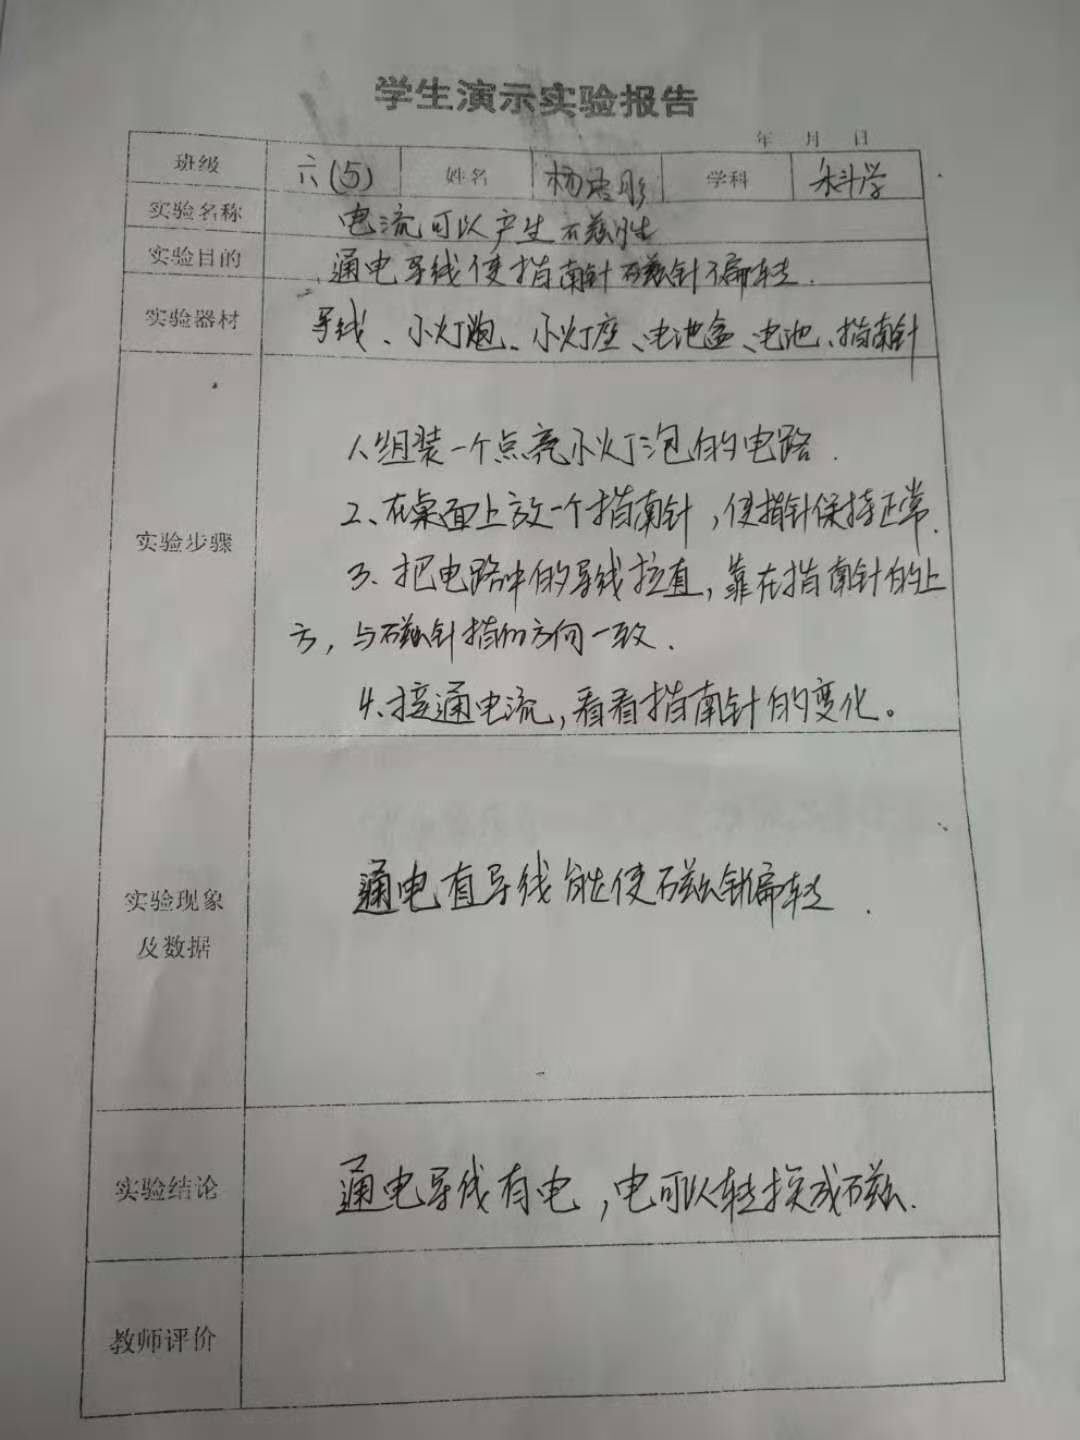 学生演示实验报告
年 月 日
班级 六(5) 姓名 杨 彤 学科 科学
实验名称 电流可以产生磁性
实验目的 通电导线使指南针磁针偏转.
实验器材 导线、小灯炮、小灯座、电池盒、电池、指南针
1、组装一个点亮小灯泡的电路.
2、在桌面上放一个指南针,使指针保持正常.
实验步骤
3、把电路中的导线拉直,靠在指南针的上
方,与磁针指的方向一致.
4、接通电流,看看指南针的变化。
实验现象
及数据
通电直导线能使磁针偏转.
实验结论 通电导线有电,电可以转换成磁.
教师评价